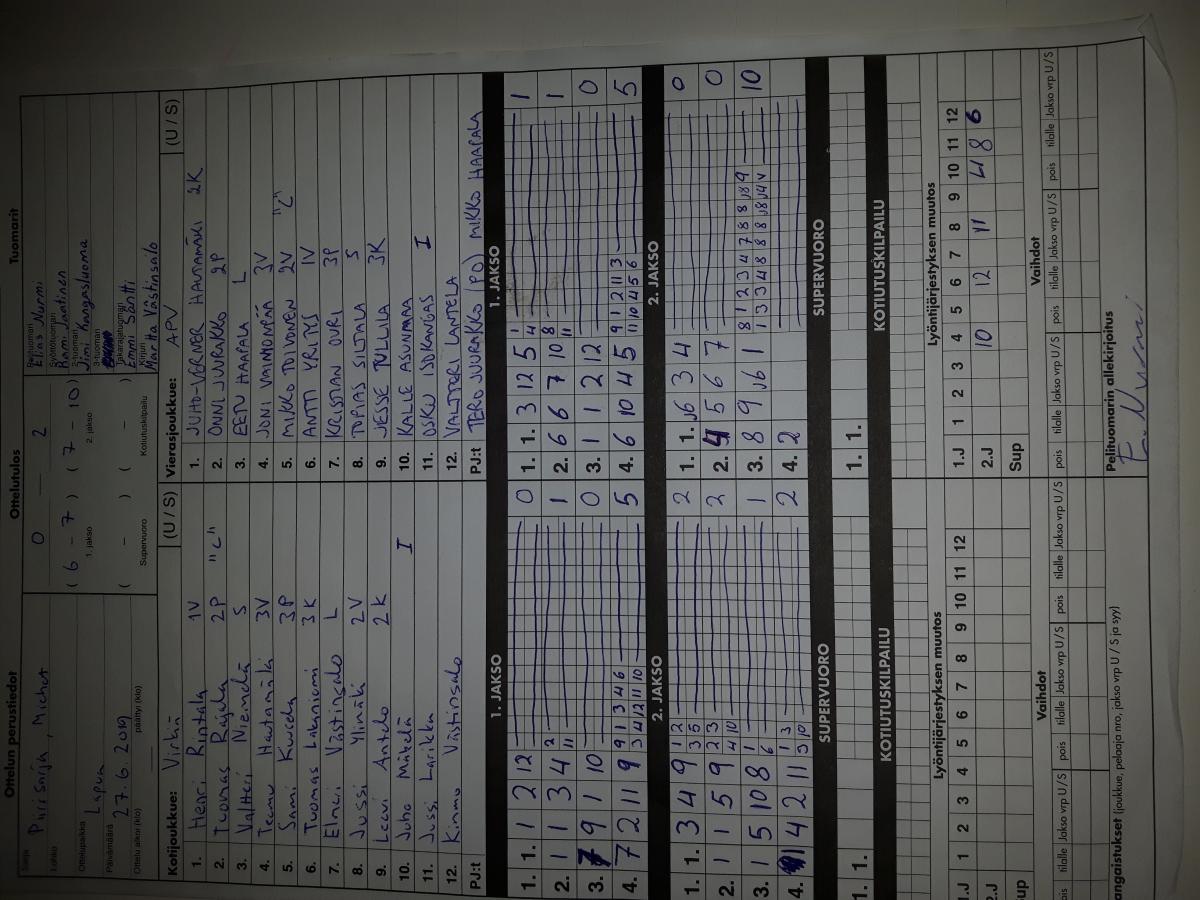 Ottelun perustiedot
Sarja Piirisarja, Miehet
Lohko
Ottelupaikka Lapua
Päivämäärä 27.6.2019
Ottelu alkoi (klo) päättyi (klo)
Ottelutulos
0 — 2
( 6 – 7 ) ( 7 – 10 )
1. jakso 2. jakso
( – ) ( – )
Supervuoro Kotiutuskilpailu
Tuomarit
Pelituomari
Elias Nurmi
Syöttötuomari
Rami Luotinen
2-tuomari
Jimi Kangasluoma
3-tuomari
Takarajatuomari
Emmi Säntti
Kirjuri
Martta Västinsalo
Kotijoukkue: Virkiä (U / S)
1. Henri Rintala 1V
2. Tuomas Rajala 2P "C"
3. Valtteri Niemelä S
4. Teemu Hautamäki 3V
5. Sami 3P
6. Tuomas Lakaniemi 3K
7. Elmeri Västinsalo L
8. Jussi Ylimäki 2V
9. Leevi Antela 2K
10. Juho Mäntelä I
11. Jussi Larikka
12. Kimmo Västinsalo
PJ:t
Vierasjoukkue: APV (U / S)
1. JUHO-VERNER HAUTAMÄKI 2K
2. ONNI JUURAKKO 2P
3. EETU HAAPALA L
4. JONI VAINIONPÄÄ 3V
5. MIKKO TOIVONEN 2V "C"
6. ANTTI YRITYS 1V
7. KRISTIAN OURI 3P
8. TOPIAS SILTALA S
9. JESSE TULLILA 3K
10. KALLE ASUNMAA
11. OSKU ISOKANGAS I
12. VALTTERI LANTELA
PJ:t TERO JUURAKKO (PJ) MIKKO HAAPALA
1. JAKSO
1. 1. 1 2 12 0
2. 1 3 4 2 11 1
3. 7 9 1 10 0
4. 7 2 11 9 9 1 3 4 6 5
3 4 12 11 10
1. JAKSO
1. 1. 3 12 5 1 4 1
2. 6 6 7 10 8 11 1
3. 1 1 2 12 0
4. 6 10 4 5 9 1 2 11 3 5
11 10 4 5 6
2. JAKSO
1. 1. 3 4 9 1 2 2
3 5
2. 1 1 5 9 2 3 2
4 10
3. 1 5 10 8 1 6 1
4. 1 4 2 11 1 3 2
3 10
2. JAKSO
1. 1. J6 3 4 0
2. 4 5 6 7 0
3. 8 9 J6 1 8 1 2 3 4 7 8 8 J8 9 10
1 3 3 4 8 8 8 J8 J4 V
4. 2
SUPERVUORO
1. 1.
SUPERVUORO
1. 1.
KOTIUTUSKILPAILU
KOTIUTUSKILPAILU
Lyöntijärjestyksen muutos
1 2 3 4 5 6 7 8 9 10 11 12
1.J
2.J
Sup
Lyöntijärjestyksen muutos
1 2 3 4 5 6 7 8 9 10 11 12
1.J
2.J 10 12 11 4 8 6
Sup
Vaihdot
pois tilalle Jakso vrp U / S pois tilalle Jakso vrp U / S pois tilalle Jakso vrp U / S
Vaihdot
pois tilalle Jakso vrp U / S pois tilalle Jakso vrp U / S pois tilalle Jakso vrp U / S
angaistukset (joukkue, pelaaja nro, jakso vrp U / S ja syy)
Pelituomarin allekirjoitus
E. Nurmi